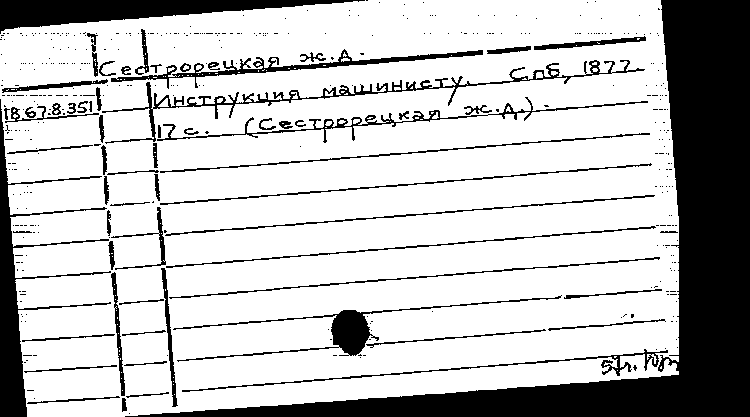 Сестрорецкая ж.д.
18.67.8.351 Инструкция машинисту. Спб, 1877
17 с. (Сестрорецкая ж.д.).